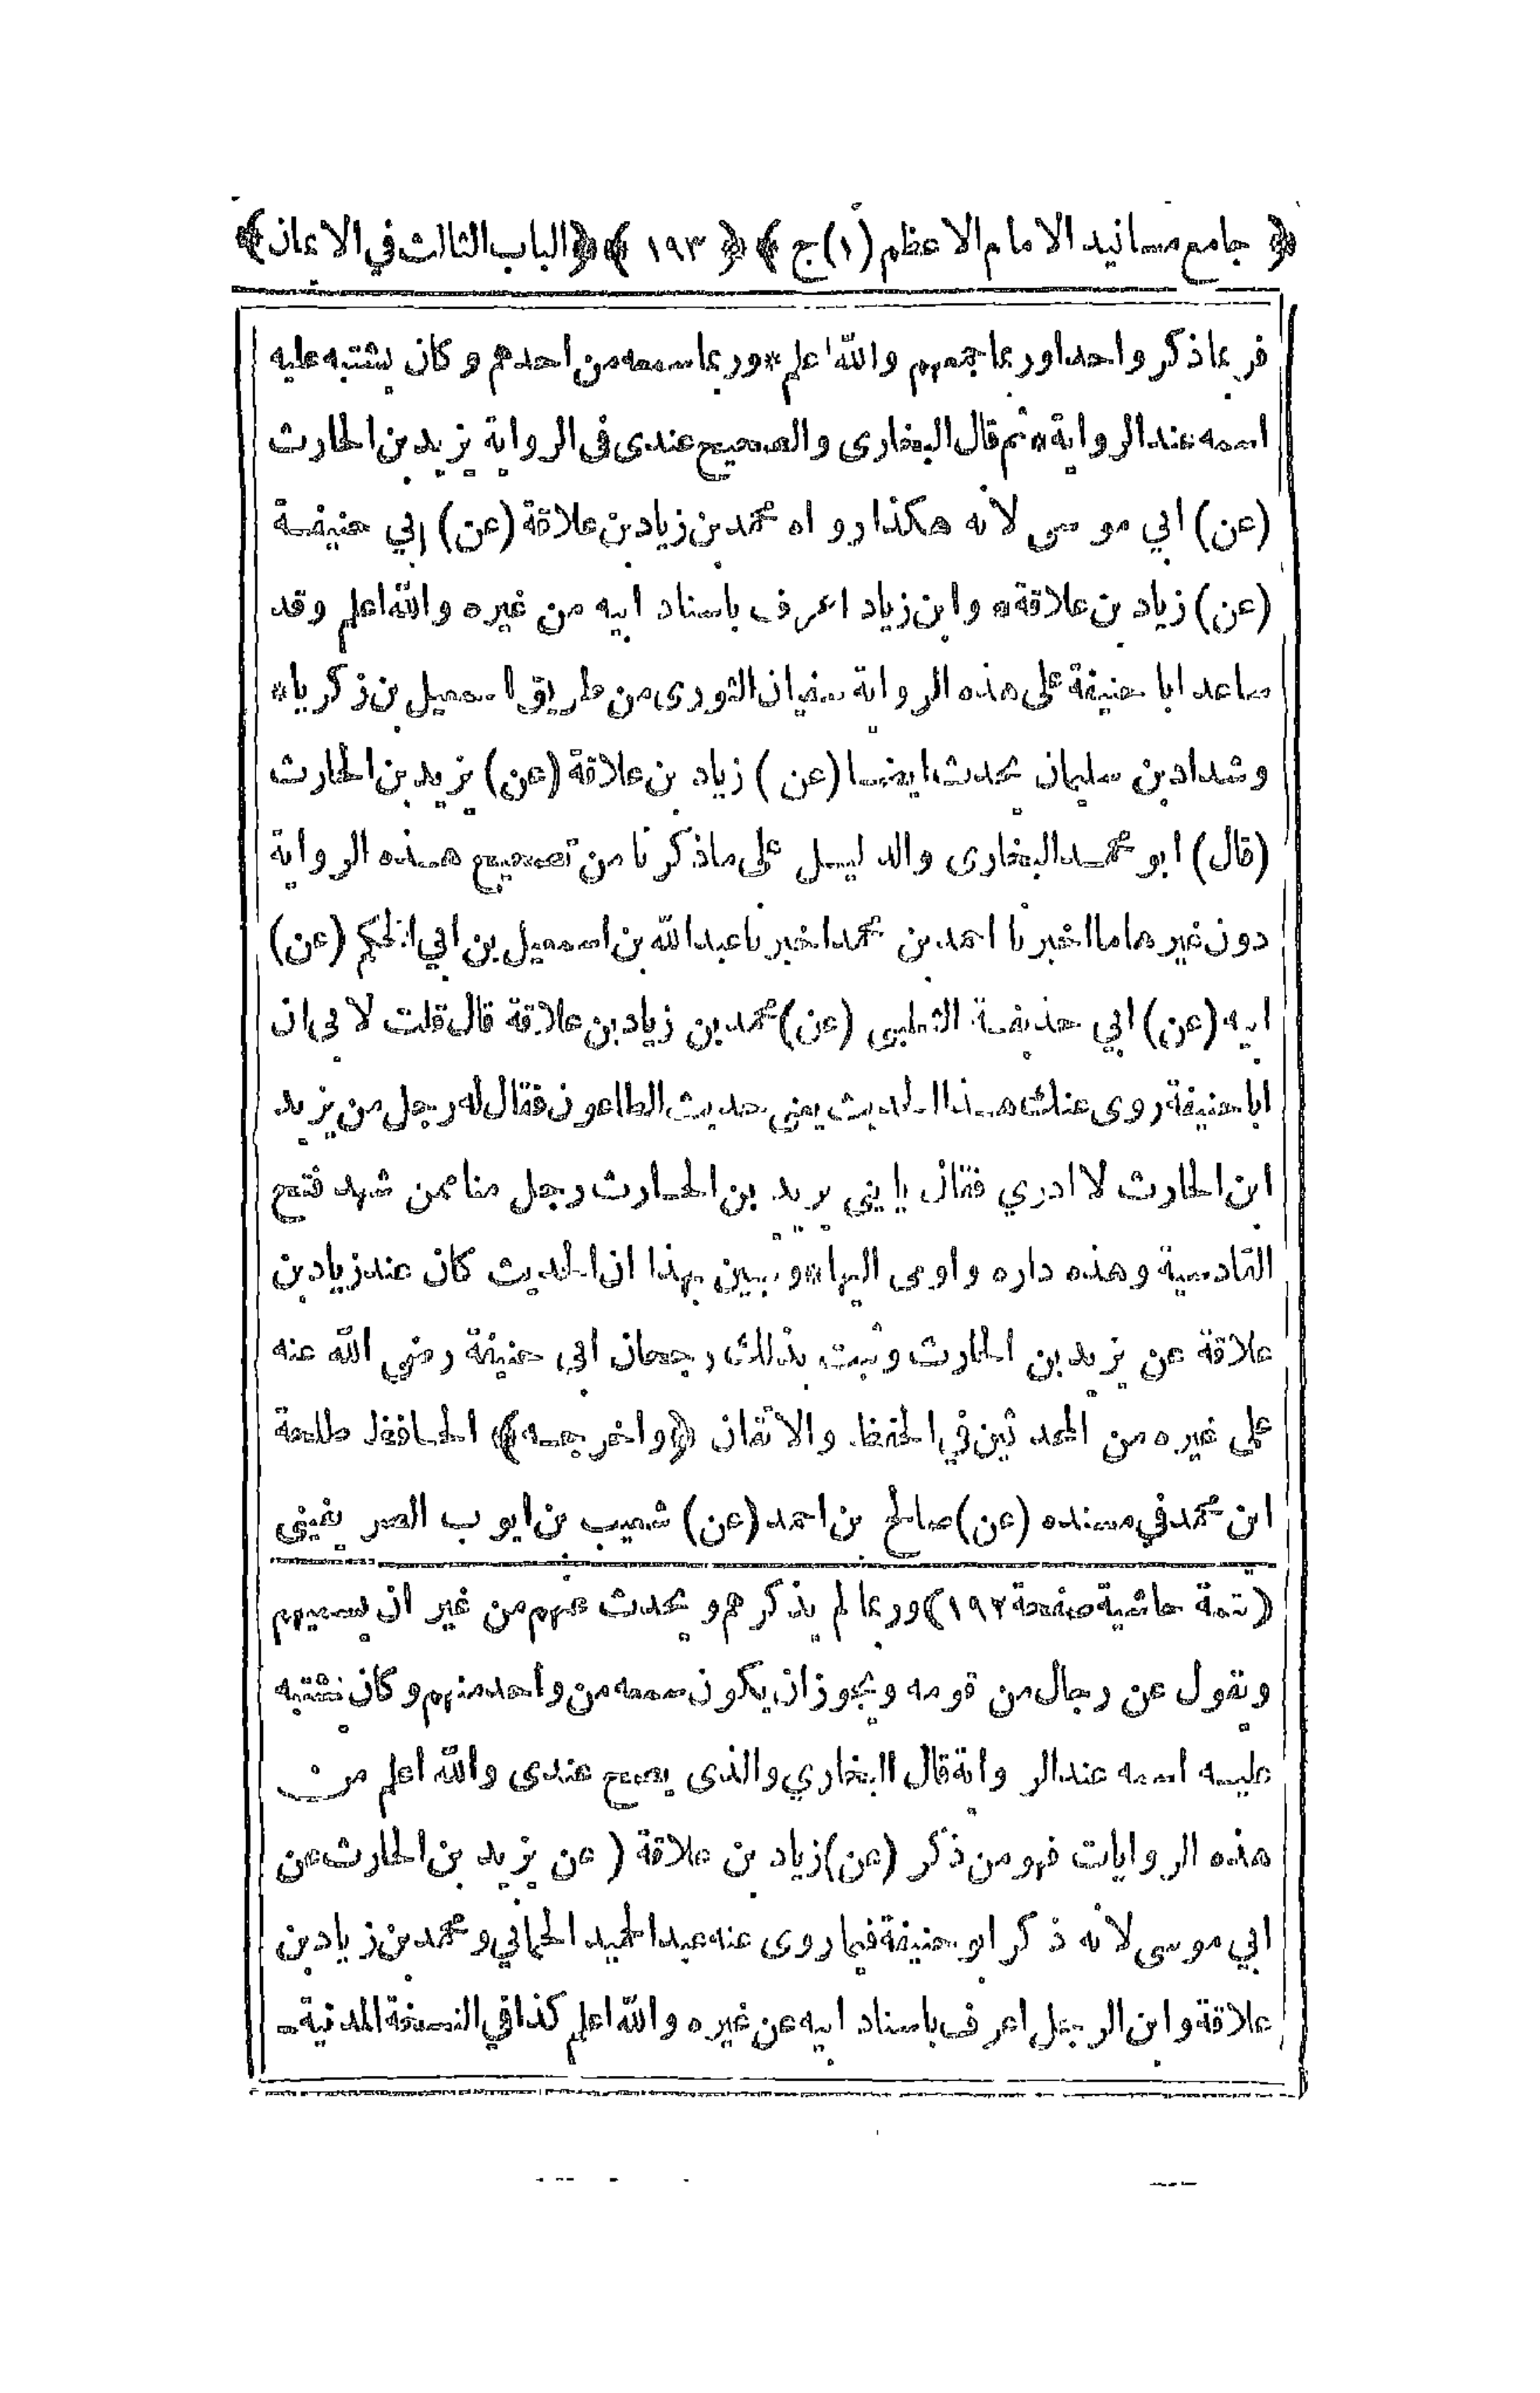 ﴿ جامع مسانيد الامام الاعظم (١)ج ﴾ ﴿ ١٩٣ ﴾ ﴿الباب الثالث في الايمان﴾
فربما ذكر واحدا وربما جمعهم والله اعلم * وربما سمعه من احدهم وكان يشتبه عليه
اسمه عند الرواية * ثم قال البخارى والصحيح عندى فى الرواية يزيد بن الحارث
(عن) ابي موسى لانه هكذا رواه محمد بن زياد بن علاقة (عن) ابي حنيفة
(عن) زياد بن علاقة * وابن زياد اعرف باسناد ابيه من غيره والله اعلم وقد
ساعد ابا حنيفة على هذه الرواية سفيان الثورى من طريق اسمعيل بن زكريا *
وشداد بن سليمان يحدث ايضا (عن ) زياد بن علاقة (عن) يزيد بن الحارث
(قال) ابو محمد البخارى والدليل على ماذكرنا من تصحيح هذه الرواية
دون غيرها ما اخبرنا احمد بن محمد اخبرنا عبد الله بن اسمعيل بن ابي الحكم (عن)
ابيه (عن) ابي حذيفة الثعلبى (عن) محمد بن زياد بن علاقة قال قلت لابى ان
ابا حنيفة روى عنك هذا الحديث يعنى حديث الطاعون فقال له رجل من يزيد
ابن الحارث لا ادري فقال يابنى يزيد بن الحارث رجل منا ممن شهد فتح
القادسية وهذه داره واومى اليها * وتبين بهذا ان الحديث كان عند زياد بن
علاقة عن يزيد بن الحارث وثبت بذلك رجحان ابى حنيفة رضى الله عنه
على غيره من المحدثين في الحفظ والاتقان ﴿واخرجه﴾ الحافظ طلحة
ابن محمد في مسنده (عن) صالح بن احمد (عن) شعيب بن ايوب الصريفينى
(تتمة حاشية صفحة ١٩٢) وربما لم يذكرهم ويحدث عنهم من غير ان يسميهم
ويقول عن رجال من قومه ويجوز ان يكون سمعه من واحد منهم وكان يشتبه
عليه اسمه عند الرواية قال البخاري والذى يصح عندى والله اعلم من
هذه الروايات فهو من ذكر (عن) زياد بن علاقة ( عن يزيد بن الحارث عن
ابي موسى لانه ذكر ابو حنيفة فيما روى عنه عبد الحميد الحماني و محمد بن زياد بن
علاقة وابن الرجل اعرف باسناد ابيه عن غيره والله اعلم كذا في النسخة المدنية ـ